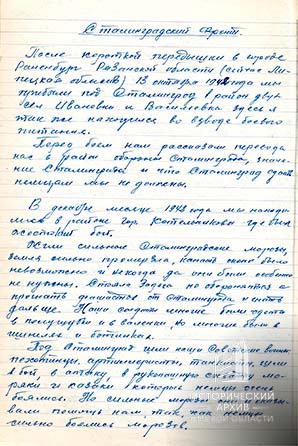 Сталинградский Фронт.
После короткой передышки в городе
Раненбург Рязанской области (сейчас Ли-
пецкая область) 13 октября 1942 года мы
прибыли под Сталинград в район двух
сел Ивановки и Васильевка здесь я
так же находился во взводе боевого
питания.
Перед боем нам рассказали переезда
нас в район обороны Сталинграда, значе-
ние Сталинграда и что Сталинград сдать
немцам мы не должны.
В декабре месяце 1942 года мы находи-
лись в районе гор. Котельниково где был
бой.
Жгли сильные Сталинградские морозы,
земля сильно промерзла, копать окопы было
невозможно и некогда да они были особенно
не нужны. Стояла задача не обороняться а
прогнать фашистов от Сталинграда и гнать
дальше. Наши солдаты многие были одеты
в полушубки и в валенки но многие были в
шинелях и ботинках.
Под Сталинград шли наши Советские воины
пехотинцы, артиллеристы, танкисты, шли
в бой, в атаку, в рукопашную схватку мо-
ряки и казаки которых немцы очень
боялись. Но сильные морозы
помочь нам, так как немцы
сильно боялись морозов.
ИСТОРИЧЕСКИЙ
АРХИВ
ОБЛАСТИ